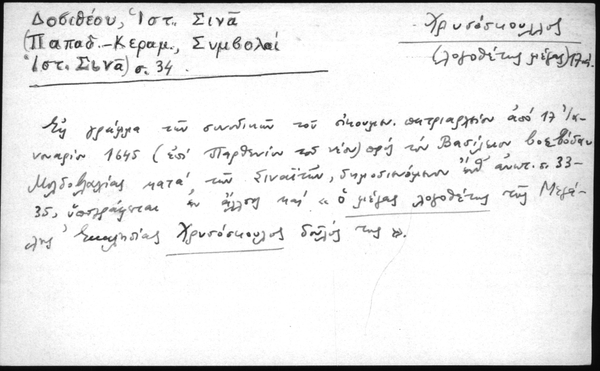 Δοσιθέου, Ἱστ. Σινᾶ
(Παπαδ.-Κεραμ., Συμβολαί
Ἱστ. Σινᾶ) σ. 34.
Χρυσόσκουλλος
(λογοθέτης μέγας) 17 αἰ.
Εἰς γράμμα τῶν συνοδικῶν τοῦ οἰκουμεν. πατριαρχείου ἀπό 17 Ἰα-
νουαρίου 1645 (ἐπί Παρθενίου τοῦ νέου) πρός τόν Βασίλειον βοεβόδαν
Μολδοβλαχίας κατά τῶν Σιναϊτῶν, δημοσιευόμενον ἀνωτ. σ. 33-
35, ὑπογράφεται ἐν ἄλλοις καί « ὁ μέγας λογοθέτης τῆς Μεγά-
λης Ἐκκλησίας Χρυσόσκουλος δοῦλός της ».